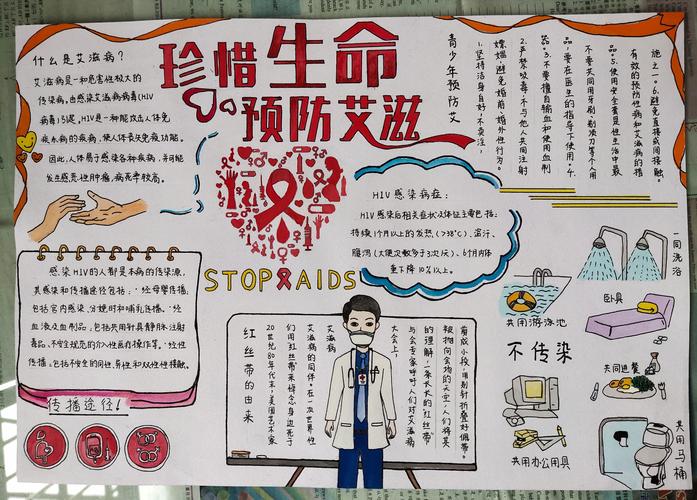 珍惜生命
预防艾滋
什么是艾滋病？
艾滋病是一种危害性极大的
传染病，由感染艾滋病病毒(HIV
病毒)引起。HIV是一种能攻击人体免
疫系统的病毒，使人体丧失免疫功能。
因此，人体易于感染各种疾病，并可能
发生恶性肿瘤，病死率较高。
青少年预防艾
1.坚持洁身自好，不卖淫、
嫖娼，避免婚前、婚外性行为。
2.严禁吸毒，不与他人共用注射
器。3.不要擅自输血和使用血制
品，要在医生的指导下使用。4.
不要共用牙刷、剃须刀等个人用
品。5.使用安全套是性生活中最
有效的预防性病和艾滋病的措
施之一。6.避免直接或间接接触。
HIV感染病症：
HIV感染后相关症状及体征主要包括：
持续1个月以上的发热(>38℃)、盗汗、
腹泻(大便次数多于3次/天)、6个月内体
重下降10%以上。
STOP AIDS
感染HIV的人都是本病的传染源，
其感染和传播途径包括：·经母婴传播，
包括宫内感染、分娩时和哺乳传播。·经
血液及血制品，包括共用针具静脉注射
毒品、不安全规范的介入性医疗操作等。·经性
传播，包括不安全的同性、异性和双性性接触。
传播途径！
红丝带的由来
20世纪80年代末，美国艺术家
们用红丝带来悼念身边死于
艾滋病的同伴。在一次世界性
艾滋病
大会上，
与会专家呼吁人们对艾滋病
的理解，一条长长的"红丝带"
被抛向会场的天空，人们将其
剪成小段，用别针折叠好佩带。
一同洗浴
共用游泳池
卧具
不传染
共同进餐
共用办公用具
共用马桶